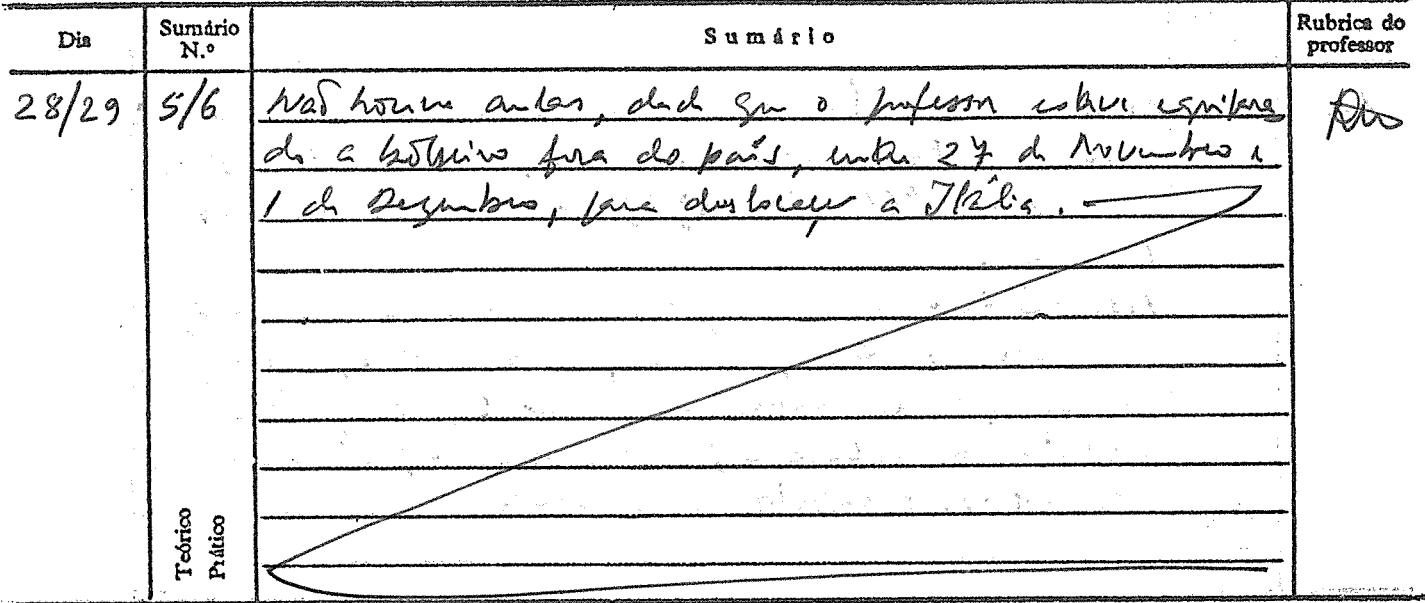 Dia
Sumário
N.º
Sumário
Rubrica do
professor
28/29
5/6
Não houve aulas, dado que o professor esteve equipara
do a bolseiro fora do país, entre 27 de Novembro e
1 de Dezembro, para deslocação a Itália.
Teórico
Prático